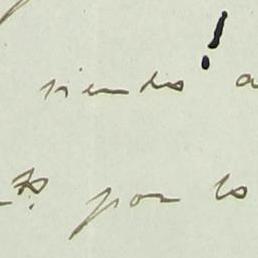 siendo! a
por lo